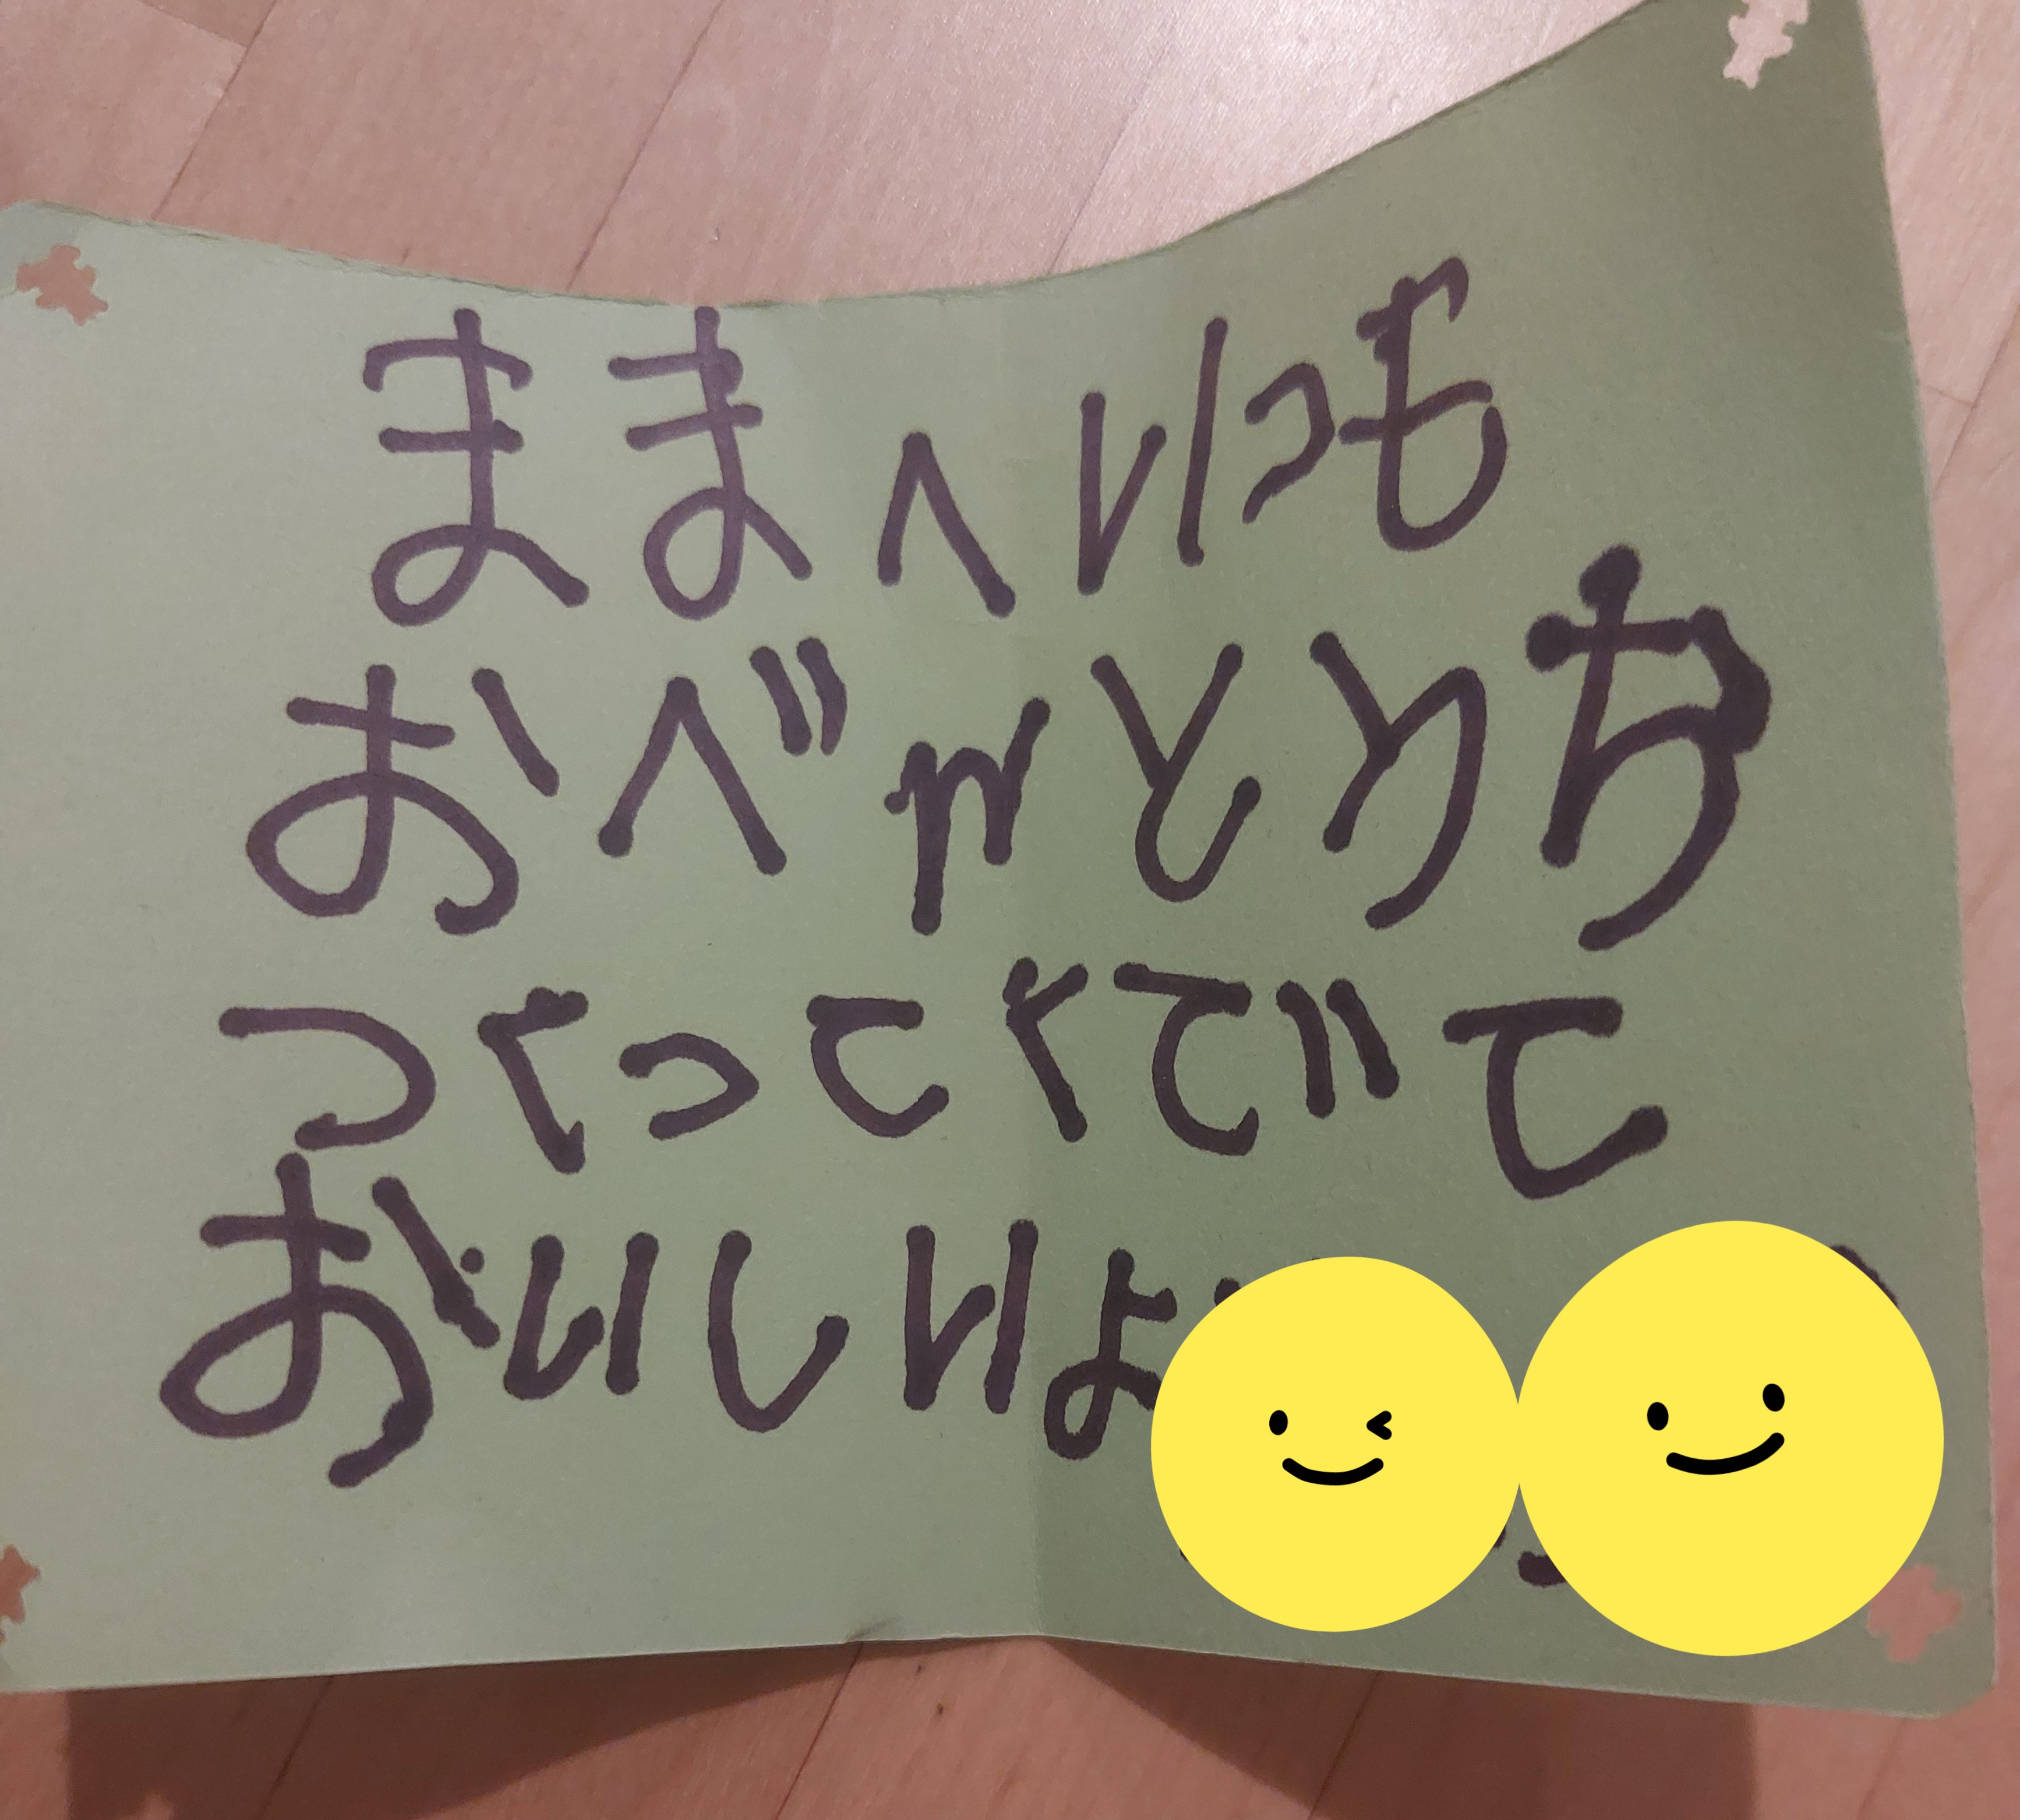 ままへいつも
おべんとうを
つくってくでて
おいしいよ